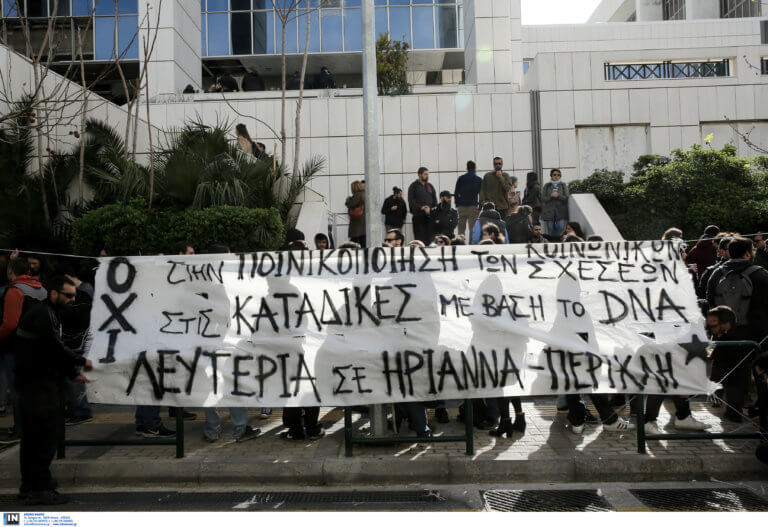 ΟΧΙ
ΣΤΗΝ ΠΟΙΝΙΚΟΠΟΙΗΣΗ ΤΩΝ ΚΟΙΝΩΝΙΚΩΝ ΣΧΕΣΕΩΝ
ΣΤΙΣ ΚΑΤΑΔΙΚΕΣ ΜΕ ΒΑΣΗ ΤΟ DNA
ΛΕΥΤΕΡΙΑ ΣΕ ΗΡΙΑΝΝΑ - ΠΕΡΙΚΛΗ
IN